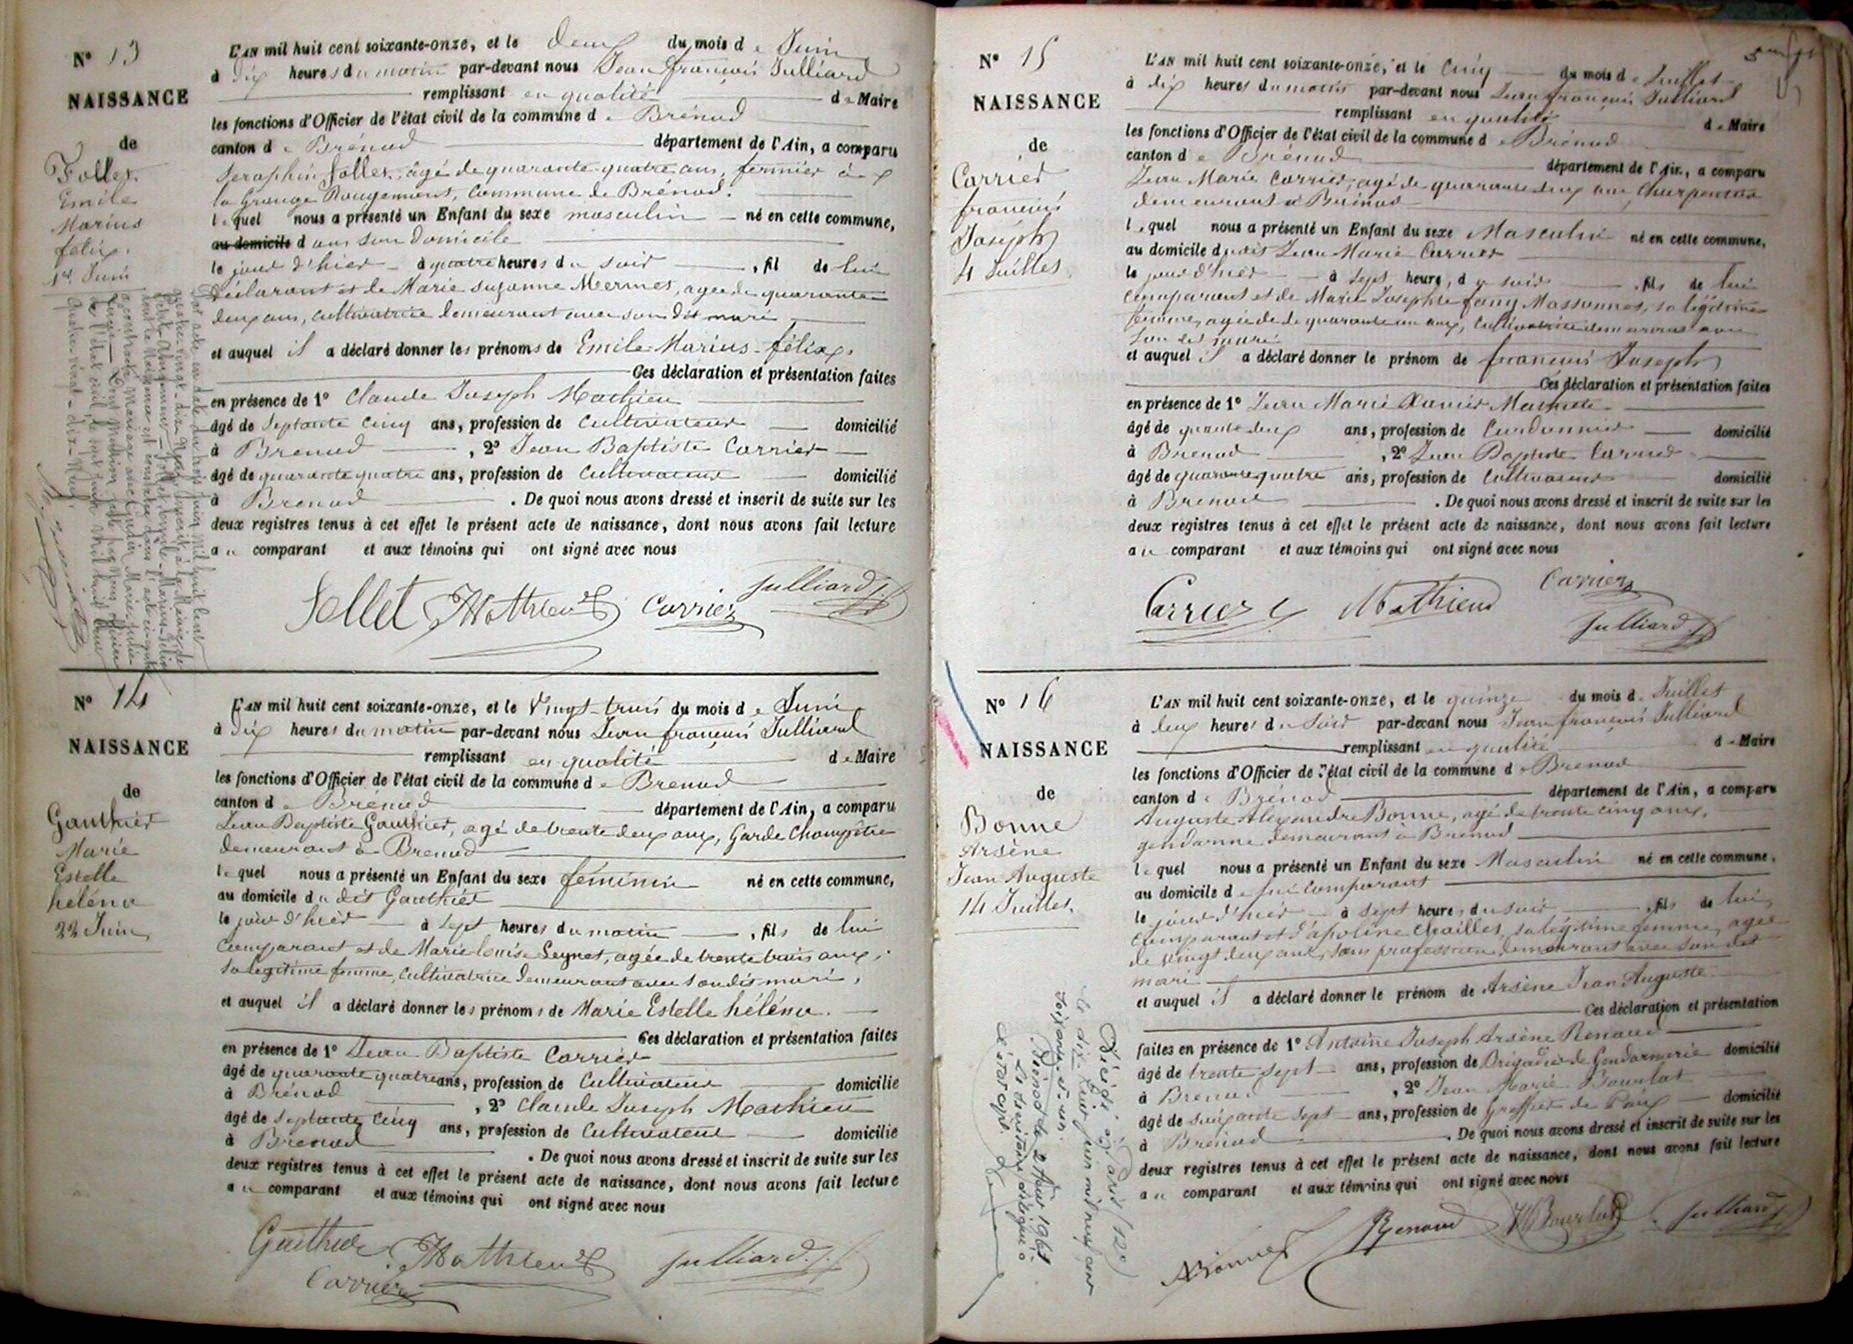 N° 13
NAISSANCE
de
Follet
Emile
Marius
félix.
1er Juin
L'AN mil huit cent soixante-onze, et le deux du mois de Juin
à dix heures du matin par-devant nous Jean françois Julliard
remplissant en qualité de Maire
les fonctions d'Officier de l'état civil de la commune de Brénod
canton de Brénod département de l'Ain, a comparu
Seraphin follet, âgé de quarante quatre ans, fermier à
la Grange Rougemont, Commune de Brénod.
lequel nous a présenté un Enfant du sexe masculin né en cette commune,
au domicile dans son domicile
le jour d'hier à quatre heures du soir, fil de lui
déclarant et de Marie Suzanne Mermet, agée de quarante
deux ans, cultivatrice demeurant avec son dit mari
et auquel il a déclaré donner les prénoms de Emile Marius félix.
Ces déclaration et présentation faites
en présence de 1° Claude Joseph Mathieu
âgé de Septante Cinq ans, profession de Cultivateur domicilié
à Brenod, 2° Jean Baptiste Carrier
âgé de quarante quatre ans, profession de Cultivateur domicilié
à Brenod. De quoi nous avons dressé et inscrit de suite sur les
deux registres tenus à cet effet le présent acte de naissance, dont nous avons fait lecture
au comparant et aux témoins qui ont signé avec nous
follet Mathieu Carrier Julliard
N° 14
NAISSANCE
de
Gauthier
Marie
Estelle
héléna
22 Juin
L'AN mil huit cent soixante-onze, et le Vingt-trois du mois de Juin
à dix heures du matin par-devant nous Jean françois Julliard
remplissant en qualité de Maire
les fonctions d'Officier de l'état civil de la commune de Brenod
canton de Brénod département de l'Ain, a comparu
Jean Baptiste Gauthier, agé de trente deux ans, Garde Champêtre
demeurant à Brenod
lequel nous a présenté un Enfant du sexe féminin né en cette commune,
au domicile du dit Gauthier
le jour d'hier à sept heures du matin, fils de lui
Comparant et de Marie louise Seynet, agée de trente trois ans,
sa légitime femme, cultivatrice demeurant avec son dit mari,
et auquel il a déclaré donner les prénoms de Marie Estelle héléna.
Ces déclaration et présentation faites
en présence de 1° Jean Baptiste Carrier
âgé de quarante quatre ans, profession de Cultivateur domicilié
à Brénod, 2° Claude Joseph Mathieu
âgé de septante Cinq ans, profession de Cultivateur domicilié
à Brenod. De quoi nous avons dressé et inscrit de suite sur les
deux registres tenus à cet effet le présent acte de naissance, dont nous avons fait lecture
au comparant et aux témoins qui ont signé avec nous
Gauthier Mathieu Julliard
Carrier
N° 15
NAISSANCE
de
Carrier
françois
Joseph
4 Juillet.
L'AN mil huit cent soixante-onze, et le Cinq du mois de Juillet
à dix heures du matin par-devant nous Jean françois Julliard
remplissant en qualité de Maire
les fonctions d'Officier de l'état civil de la commune de Brénod
canton de Brénod département de l'Ain, a comparu
Jean Marie Carrier, agé de quarante deux ans, Charpentier
demeurant à Brénod
lequel nous a présenté un Enfant du sexe Masculin né en cette commune,
au domicile dudit Jean Marie Carrier
le jour d'hier à Sept heures du soir, fils de lui
Comparant et de Marie Josephte fany Massonnet, sa légitime
femme, agée de quarante un ans, Cultivatrice demeurant avec
son dit mari
et auquel il a déclaré donner le prénom de françois Joseph
Ces déclaration et présentation faites
en présence de 1° Jean Marie Xavier Mathieu
âgé de quarante deux ans, profession de Cordonnier domicilié
à Brenod, 2° Jean Baptiste Carrier
âgé de quarante quatre ans, profession de Cultivateur domicilié
à Brenod. De quoi nous avons dressé et inscrit de suite sur les
deux registres tenus à cet effet le présent acte de naissance, dont nous avons fait lecture
au comparant et aux témoins qui ont signé avec nous
Carrier Mathieu Carrier
Julliard
N° 16
NAISSANCE
de
Bonne
Arsène
Jean Auguste
14 Juillet.
L'AN mil huit cent soixante-onze, et le quinze du mois de Juillet
à deux heures du Soir par-devant nous Jean françois Julliard
remplissant en qualité de Maire
les fonctions d'Officier de l'état civil de la commune de Brenod
canton de Brénod département de l'Ain, a comparu
Auguste Alexandre Bonne, agé de trente cinq ans,
gendarme demeurant à Brenod
lequel nous a présenté un Enfant du sexe Masculin né en cette commune,
au domicile de lui comparant
le jour d'hier à sept heures du soir, fils de lui
Comparant et d'apoline Chailles, sa légitime femme, agée
de vingt deux ans, sans profession demeurant avec son dit
mari
et auquel il a déclaré donner le prénom de Arsène Jean Auguste
Ces déclaration et présentation
faites en présence de 1° Antoine Joseph Arsène Renaud
âgé de trente sept ans, profession de Brigadier de Gendarmerie domicilié
à Brenod, 2° Jean Marie Bourlot
âgé de soixante sept ans, profession de Greffier de Paix domicilié
à Brénod. De quoi nous avons dressé et inscrit de suite sur les
deux registres tenus à cet effet le présent acte de naissance, dont nous avons fait lecture
au comparant et aux témoins qui ont signé avec nous
Bonne Renaud Bourlot Julliard
Décédé à Paris (12e)
le dix neuf juin mil neuf cent
soixante et un.
Brénod le 2 Août 1961
Le secrétaire délégué à
l'état civil